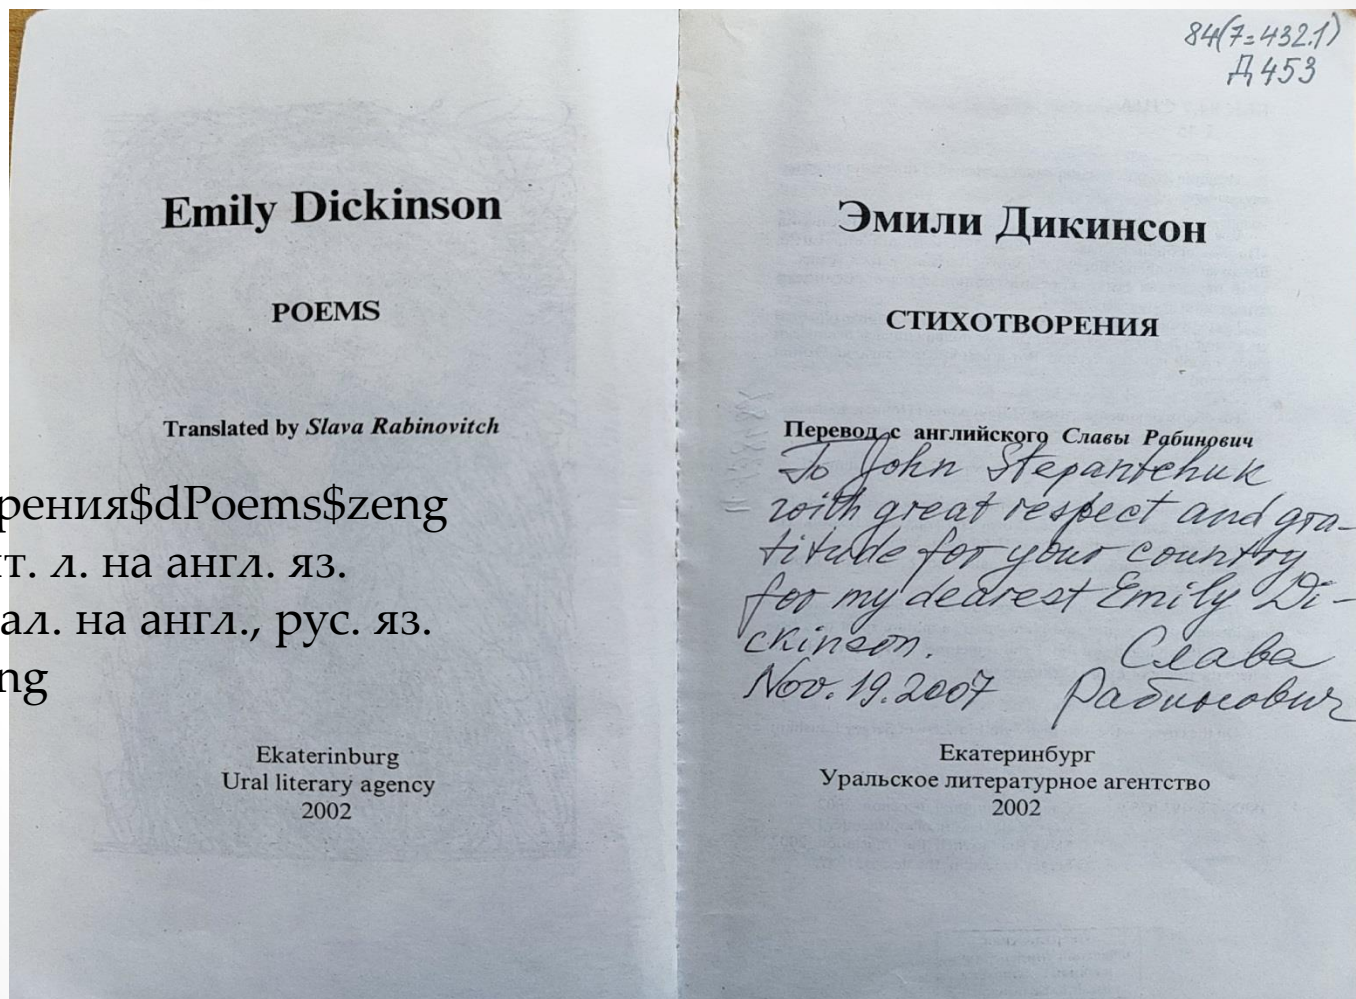 Emily Dickinson
POEMS
Translated by Slava Rabinovitch
рения$dPoems$zeng
т. л. на англ. яз.
ал. на англ., рус. яз.
ng
Ekaterinburg
Ural literary agency
2002
84(7=432.1)
Д 453
Эмили Дикинсон
СТИХОТВОРЕНИЯ
Перевод с английского Славы Рабинович
To John Stepantchuk
with great respect and gra-
titude for your country
for my dearest Emily Di-
ckinson.
Слава
Nov. 19. 2007 Рабинович
Екатеринбург
Уральское литературное агентство
2002